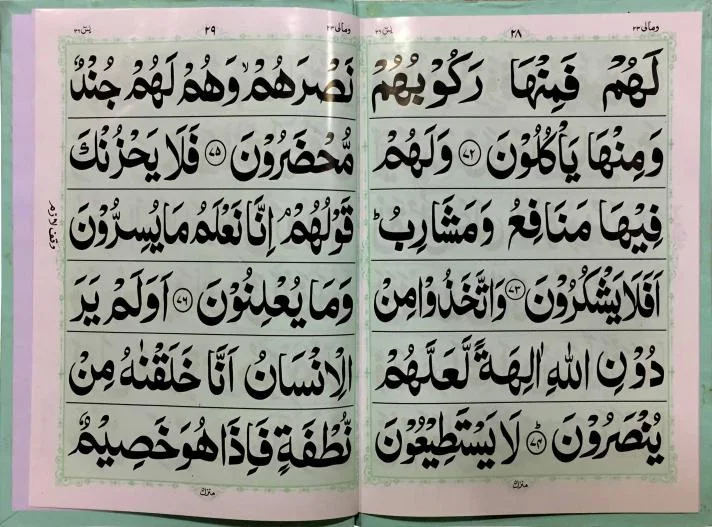 ومالی ٢٣
٢٨
یٰسٓ ٣٦
لَهُمْ فَمِنْهَا رَكُوْبُهُمْ
وَمِنْهَا يَاْكُلُوْنَ ﴿٧٢﴾ وَلَهُمْ
فِيْهَا مَنَافِعُ وَمَشَارِبُ ؕ
اَفَلَا يَشْكُرُوْنَ ﴿٧٣﴾ وَاتَّخَذُوْا مِنْ
دُوْنِ اللّٰهِ اٰلِهَةً لَّعَلَّهُمْ
يُنْصَرُوْنَ ﴿٧٤﴾ؕ لَا يَسْتَطِيْعُوْنَ
منزل
ومالی ٢٣
٢٩
یٰسٓ ٣٦
نَصْرَهُمْ ۙ وَهُمْ لَهُمْ جُنْدٌ
مُّحْضَرُوْنَ ﴿٧٥﴾ فَلَا يَحْزُنْكَ
قَوْلُهُمْ ۘ اِنَّا نَعْلَمُ مَا يُسِرُّوْنَ
وَمَا يُعْلِنُوْنَ ﴿٧٦﴾ اَوَلَمْ يَرَ
الْاِنْسَانُ اَنَّا خَلَقْنٰهُ مِنْ
نُّطْفَةٍ فَاِذَا هُوَ خَصِيْمٌ
وقف لازم
منزل